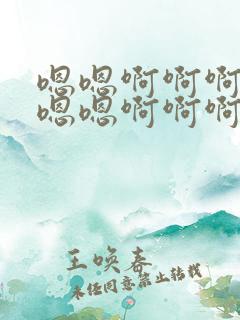 嗯嗯啊啊啊
嗯嗯啊啊啊
王唤春
未经同意禁止转载